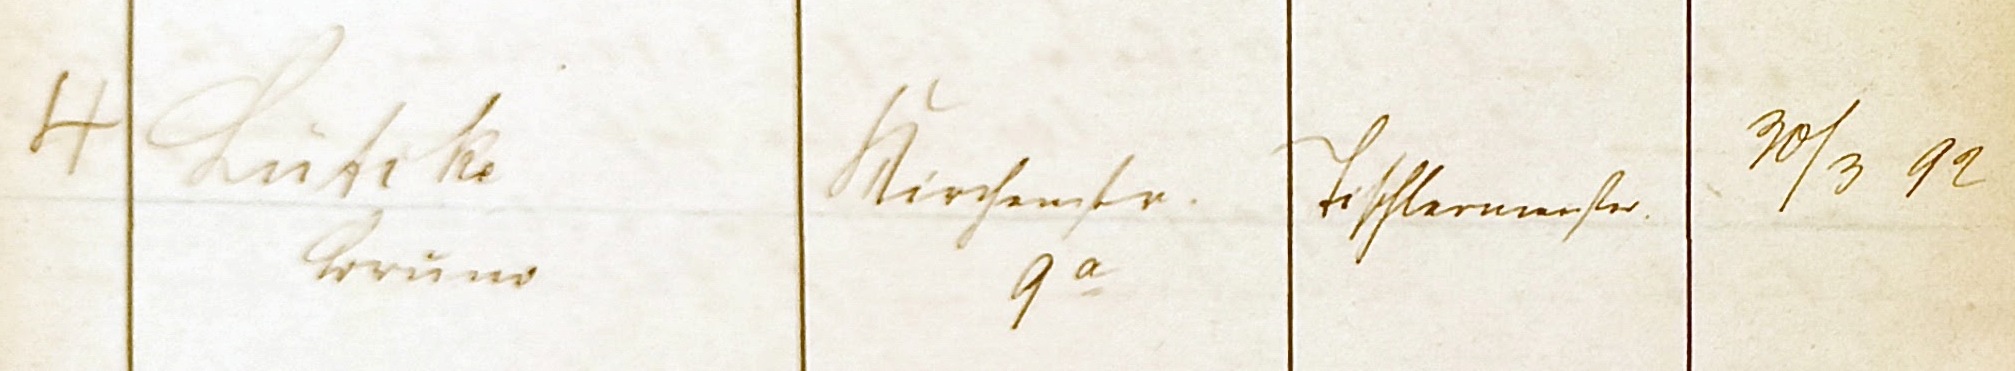 4 Lütcke Kirchenstr. Tischlermeister. 30/3 92
Bruno 9a